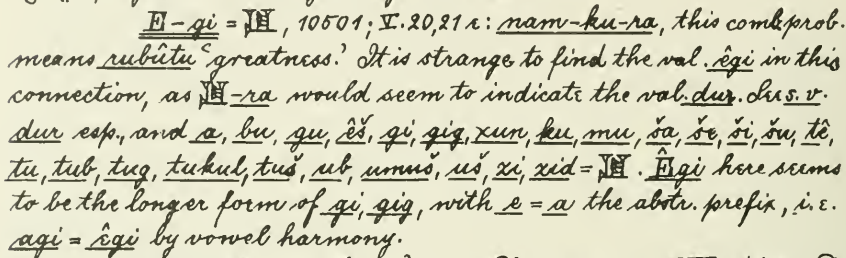 E-gi = 𒂠, 10501; V. 20, 21 c: nam-ku-ra, this comb. prob.
means rubûtu ‘greatness.’ It is strange to find the val. êgi in this
connection, as 𒂠-ra would seem to indicate the val. dur. See s. v.
dur esp., and a, bu, gu, êš, gi, gig, xun, ku, mu, ša, še, ši, šu, tê,
tu, tub, tug, tukul, tuš, ub, umuš, uš, zi, zid = 𒂠. Êgi here seems
to be the longer form of gi, gig, with e = a the abstr. prefix, i. e.
agi = êgi by vowel harmony.